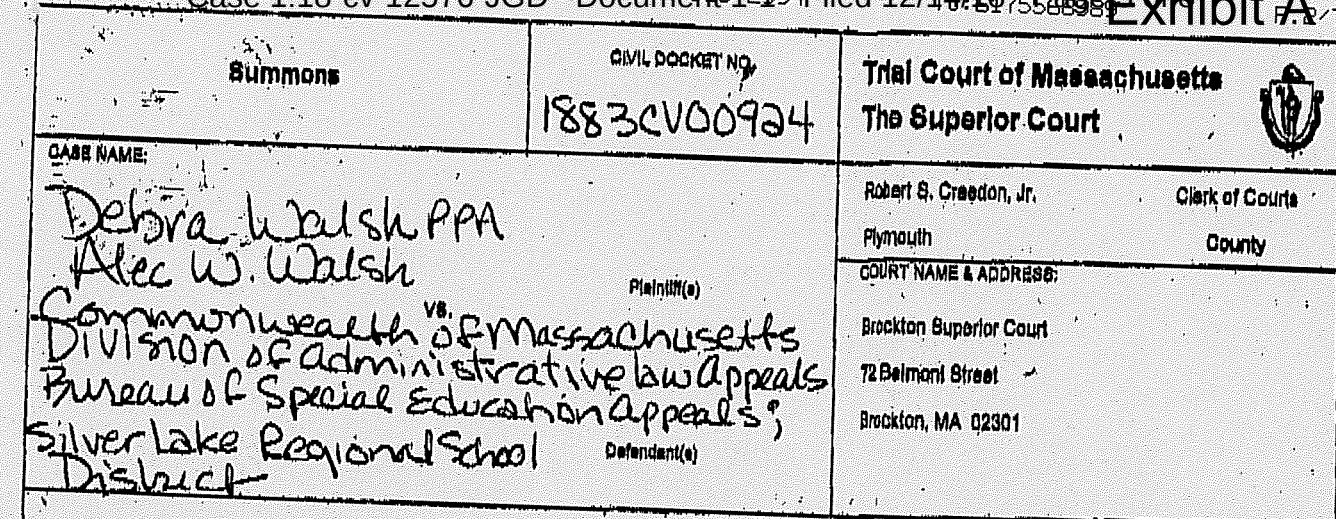 Exhibit A
Summons
CIVIL DOCKET NO.
1883CV00924
Trial Court of Massachusetts
The Superior Court
CASE NAME:
Debra Walsh PPA
Alec W. Walsh
Plaintiff(s)
vs.
Commonwealth of Massachusetts
Division of administrative law appeals
Bureau of Special Education appeals;
Silver Lake Regional School
District
Defendant(s)
Robert S. Creedon, Jr. Clerk of Courts
Plymouth County
COURT NAME & ADDRESS:
Brockton Superior Court
72 Belmont Street
Brockton, MA 02301